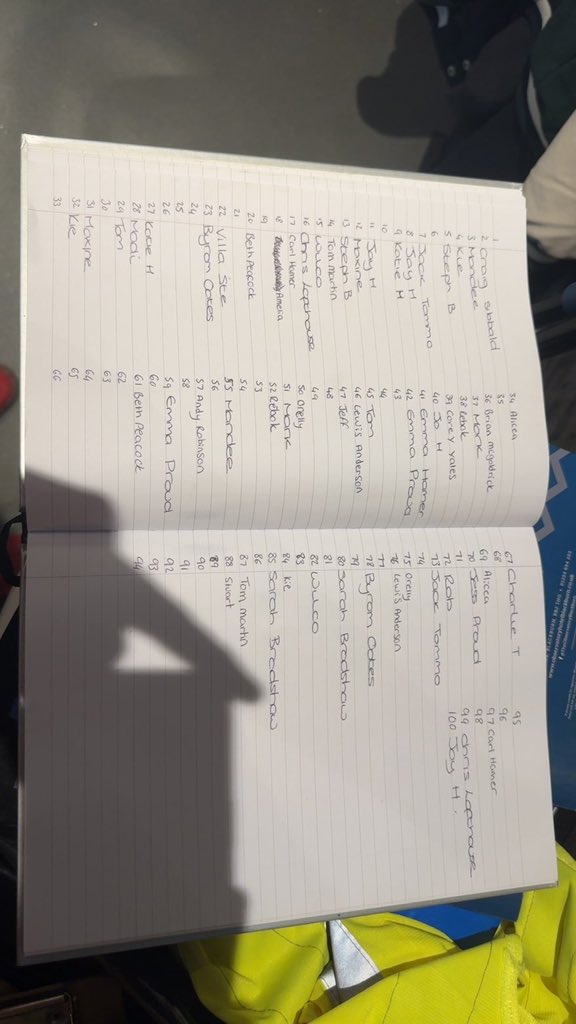 1
2 Craig sibbald
3 Mandee
4 Kie
5 Steph B
6
7 Jack Tommo
8 Jay H
9 Katie H
10
11 Jay H
12 Maxine
13 Steph B
14 Tom martin
15 Wilco
16 Chris Lofthouse
17 Carl Hamer
18 Amelia
19
20 Beth Peacock
21
22 Villa Ste
23 Byrom Oates
24
25
26
27 Katie H
28 Madi
29 Tom
30
31 Maxine
32 Kie
33
34 Alicea
35
36 Brian mcgoldrick
37 Mark
38 Rebak
39 Corey Yates
40 Jo H
41 Emma Hamer
42 Emma Proud
43
44
45 Tom
46 Lewis Anderson
47 Jeff
48
49
50 Orelly
51 Mark
52 Rebak
53
54
55 Mandee
56
57 Andy Robinson
58
59 Emma Proud
60
61 Beth Peacock
62
63
64
65
66
67 Charlie T
68
69 Alicea
70 Jess Proud
71
72 Rob
73 Jack Tommo
74
75 Orelly
76 Lewis Anderson
77
78 Byrom Oates
79
80 Sarah Bradshaw
81
82 Wilco
83
84 Kie
85 Sarah Bradshaw
86
87 Tom martin
88 Stuart
89
90
91
92
93
94
95
96
97 Carl Hamer
98
99 Chris Lofthouse
100 Jay H.